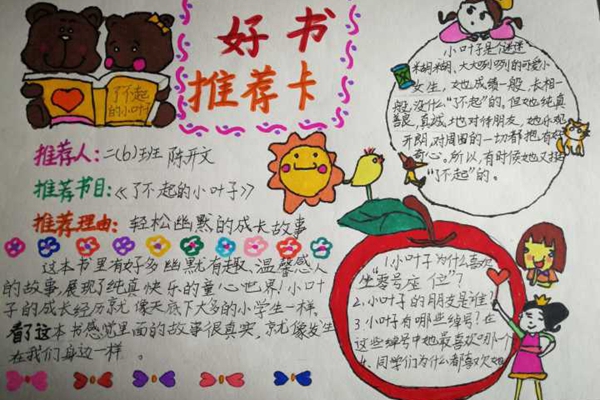 好书
推荐卡
了不起
的小叶子
推荐人：二(6)班 陈开文
推荐书目：《了不起的小叶子》
推荐理由：轻松幽默的成长故事
这本书里有好多幽默有趣、温馨感人
的故事，展现了纯真快乐的童心世界！小叶
子的成长经历就像天底下大多的小学生一样。
看了这本书感觉里面的故事很真实，就像发生
在我们身边一样。
小叶子是个迷迷
糊糊、大大咧咧的可爱小
女生，她成绩一般，长相一
般，没什么"了不起"的，但她纯真
善良，真诚地对待朋友，她乐观
开朗，对周围的一切都抱有好
奇心。所以，有时候她又挺
"了不起"的。
1.小叶子为什么喜欢
坐"零号座位"？
2.小叶子的朋友是谁？
3.小叶子有哪些绰号？在
这些绰号中她最喜欢哪一个
4、同学们为什么都喜欢她